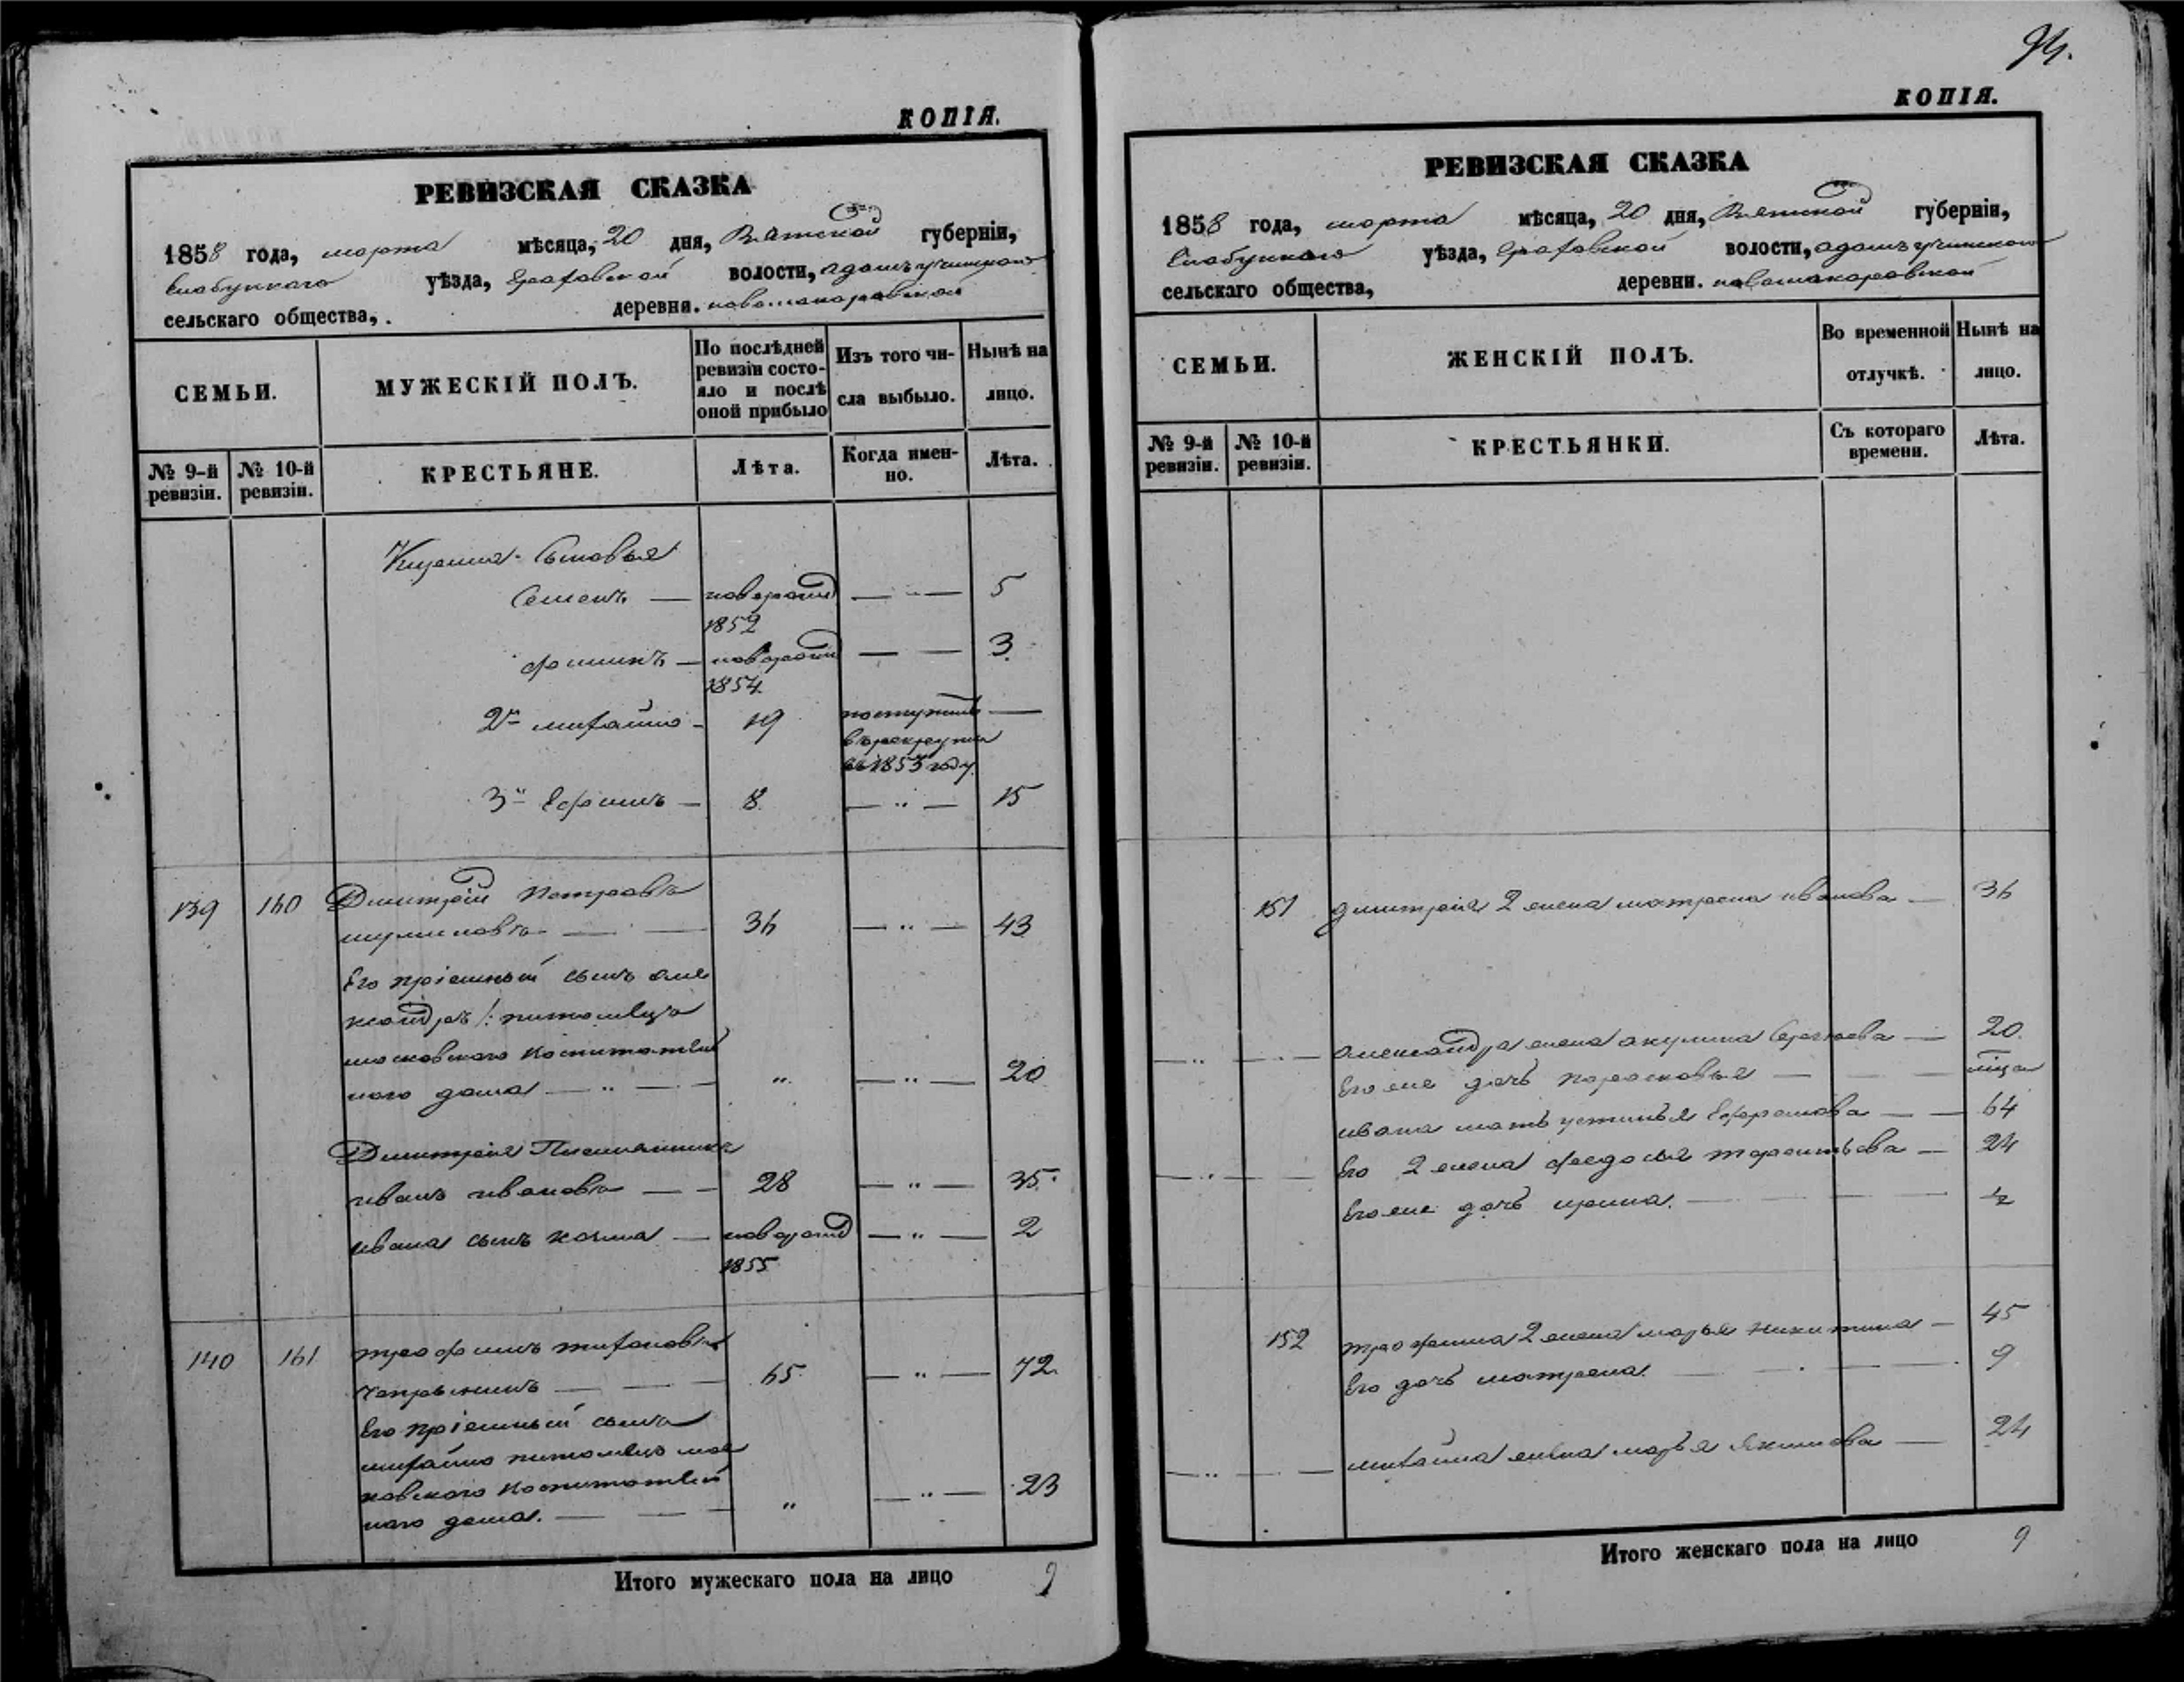 КОПІЯ.
РЕВИЗСКАЯ СКАЗКА
1858 года, марта мѣсяца, 20 дня, Вятской губерніи,
Елабужского уѣзда, Граховской волости,
сельскаго общества, деревни. новомакаровской
СЕМЬИ.
МУЖЕСКІЙ ПОЛЪ.
По послѣдней ревизіи состояло и послѣ оной прибыло
Изъ того числа выбыло.
Нынѣ на лицо.
№ 9-й ревизіи.
№ 10-й ревизіи.
КРЕСТЬЯНЕ.
Лѣта.
Когда именно.
Лѣта.
Сыновья
Семенъ — новорожд — " — 5
1852
фоминъ — новорожд — — 3
1854
2й михайло — 19 поступилъ —
въ рекруты
въ 1853 году
3й Ефимъ — 8 — " — 15
139 160 Дмитрій Петровъ
36 — " — 43
Его пріемный сынъ алек
сандръ /: питомецъ
московского воспитатель
ного дома — " — " — " — 20
Дмитрія Племянникъ
иванъ ивановъ — — 28 — " — 35
ивана сынъ козма — новорожд — " — 2
1855
140 161 трофимъ тихоновъ
65 — " — 72
Его пріемный сынъ
михайло питомецъ мос
ковского воспитатель
ного дома. — — " — " — 23
Итого мужескаго пола на лицо 9
94.
КОПІЯ.
РЕВИЗСКАЯ СКАЗКА
1858 года, марта мѣсяца, 20 дня, Вятской губерніи,
Елабужского уѣзда, Граховской волости,
сельскаго общества, деревни. новомакаровской
СЕМЬИ.
ЖЕНСКІЙ ПОЛЪ.
Во временной отлучкѣ.
Нынѣ на лицо.
№ 9-й ревизіи.
№ 10-й ревизіи.
КРЕСТЬЯНКИ.
Съ котораго времени.
Лѣта.
151 дмитрія жена матрена иванова — 36
— " — — александра жена акулина Сергѣева — 20
Его же дочь парасковья — —
ивана мать устинья Ефремова — — 64
— " — — Его жена федосья терентьева — 24
Его же дочь ирина. — — — ½
152 трофима жена марья никитина — 45
Его дочь матрена. — — — 9
— " — — михайла жена марья якимова — 24
Итого женскаго пола на лицо 9